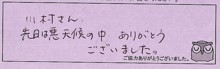 川村さん
先日は悪天候の中 ありがとう
ございました。
ご協力ありがとうございました。